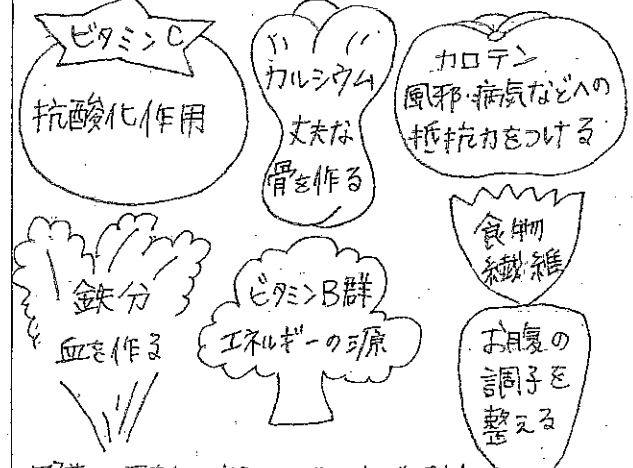 ビタミンC
抗酸化作用
カルシウム
丈夫な
骨を作る
カロテン
風邪・病気などへの
抵抗力をつける
鉄分
血を作る
ビタミンB群
エネルギーの源
食物
繊維
お腹の
調子を
整える